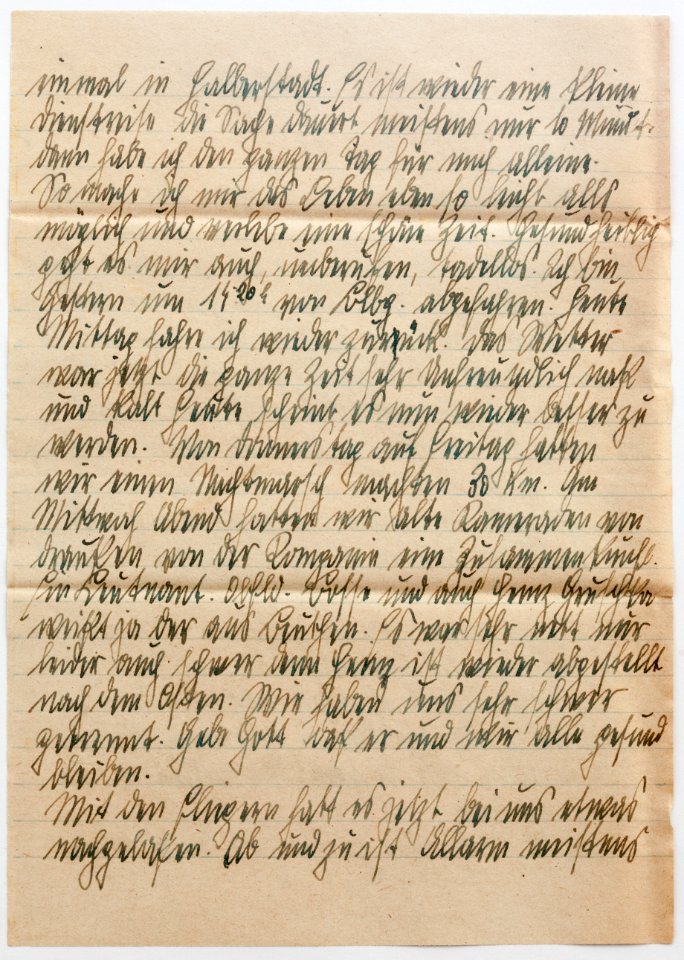 einmal in Halberstadt. Es ist wieder eine kleine
Dienstreise die Sache dauert meistens nur 10 Minut.
dann habe ich den ganzen Tag für mich alleine.
So mache ich mir das Leben eben so leicht alls
möglich und verlebe eine schöne Zeit. Gesundheitlich
geht es mir auch, unberufen, tadellos. Ich bin
Gestern um von Blbg. abgefahren. Heute
Mittag fahre ich wieder zurück. Das Wetter
war jetzt die ganze Zeit sehr Unfreundlich naß
und kalt heute scheint es nun wieder besser zu
werden. Von Donnerstag auf Freitag hatten
wir einen Nachtmarsch machten 30 km. Am
Mittwoch Abend hatten wir alte Kameraden von
draußen von der Kompanie eine Zusammenkunft.
Ein Leutnant. Obfld. Bosse und auch Heinz Gruschka
weißt ja der aus Beuthen. Es war sehr nett nur
leider auch schwer denn Heinz ist wieder abgestellt
nach dem Osten. Wir haben uns sehr schwer
getrennt. Gebe Gott daß er und wir alle gesund
bleiben.
Mit den Fliegern hatt es jetzt bei uns etwas
nachgelaßen. Ab und zu ist Allarm meistens